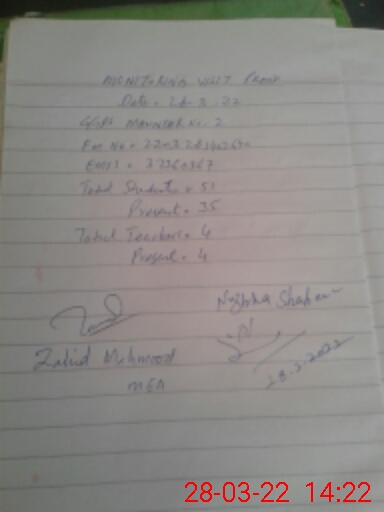 MONITORING VISIT PROOF
Date = 28.3.22
GGPS No. 2
EMIS =
Total Students = 51
Present = 35
Total Teachers = 4
Present = 4
Shaheen
Zahid Mehmood
MEA
28.3.2022
28-03-22 14:22